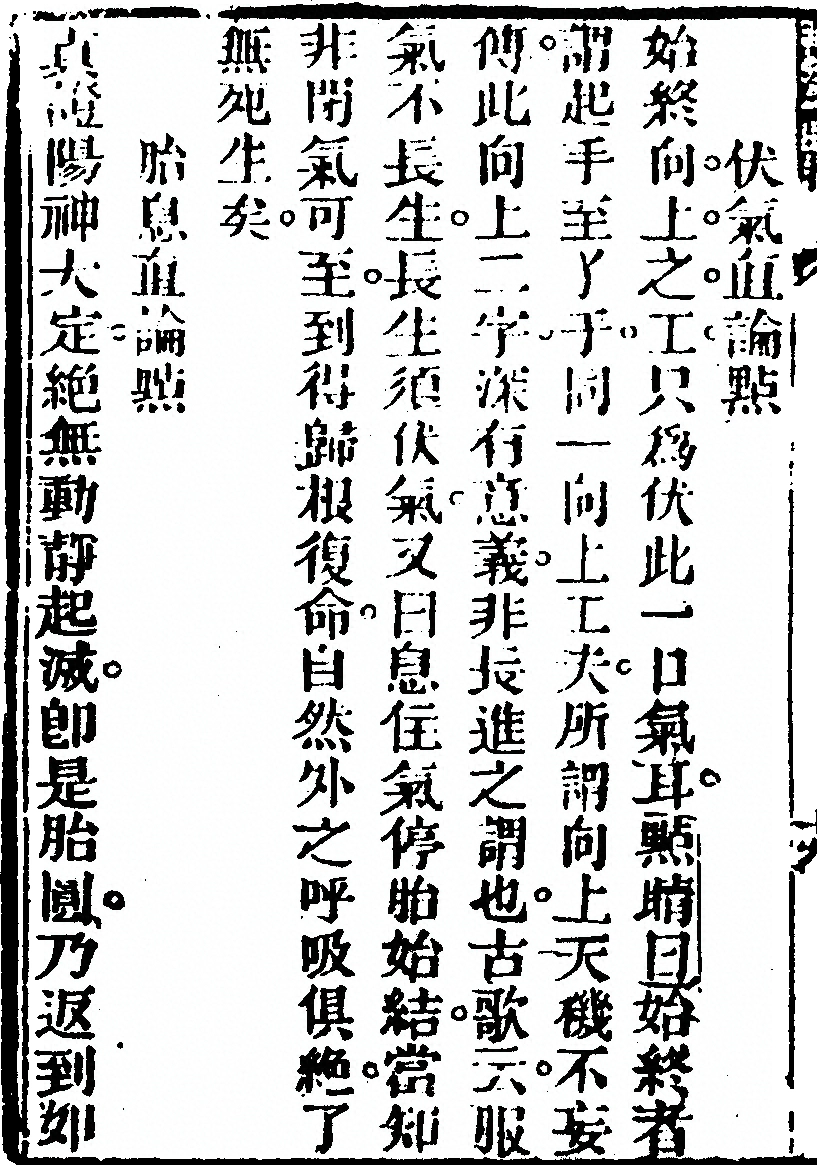 伏氣直論點
始終向上之工只爲伏此一口氣耳點睛曰始終者
謂起手至了手同一向上工夫所謂向上天機不妄
傳此向上二字深有意義非長進之謂也古歌云服
氣不長生長生須伏氣又曰息住氣停胎始結當知
非閉氣可至到得歸根復命自然外之呼吸俱絶了
無死生矣
胎息直論點
真證陽神大定絶無動靜起滅卽是胎圓乃返到如